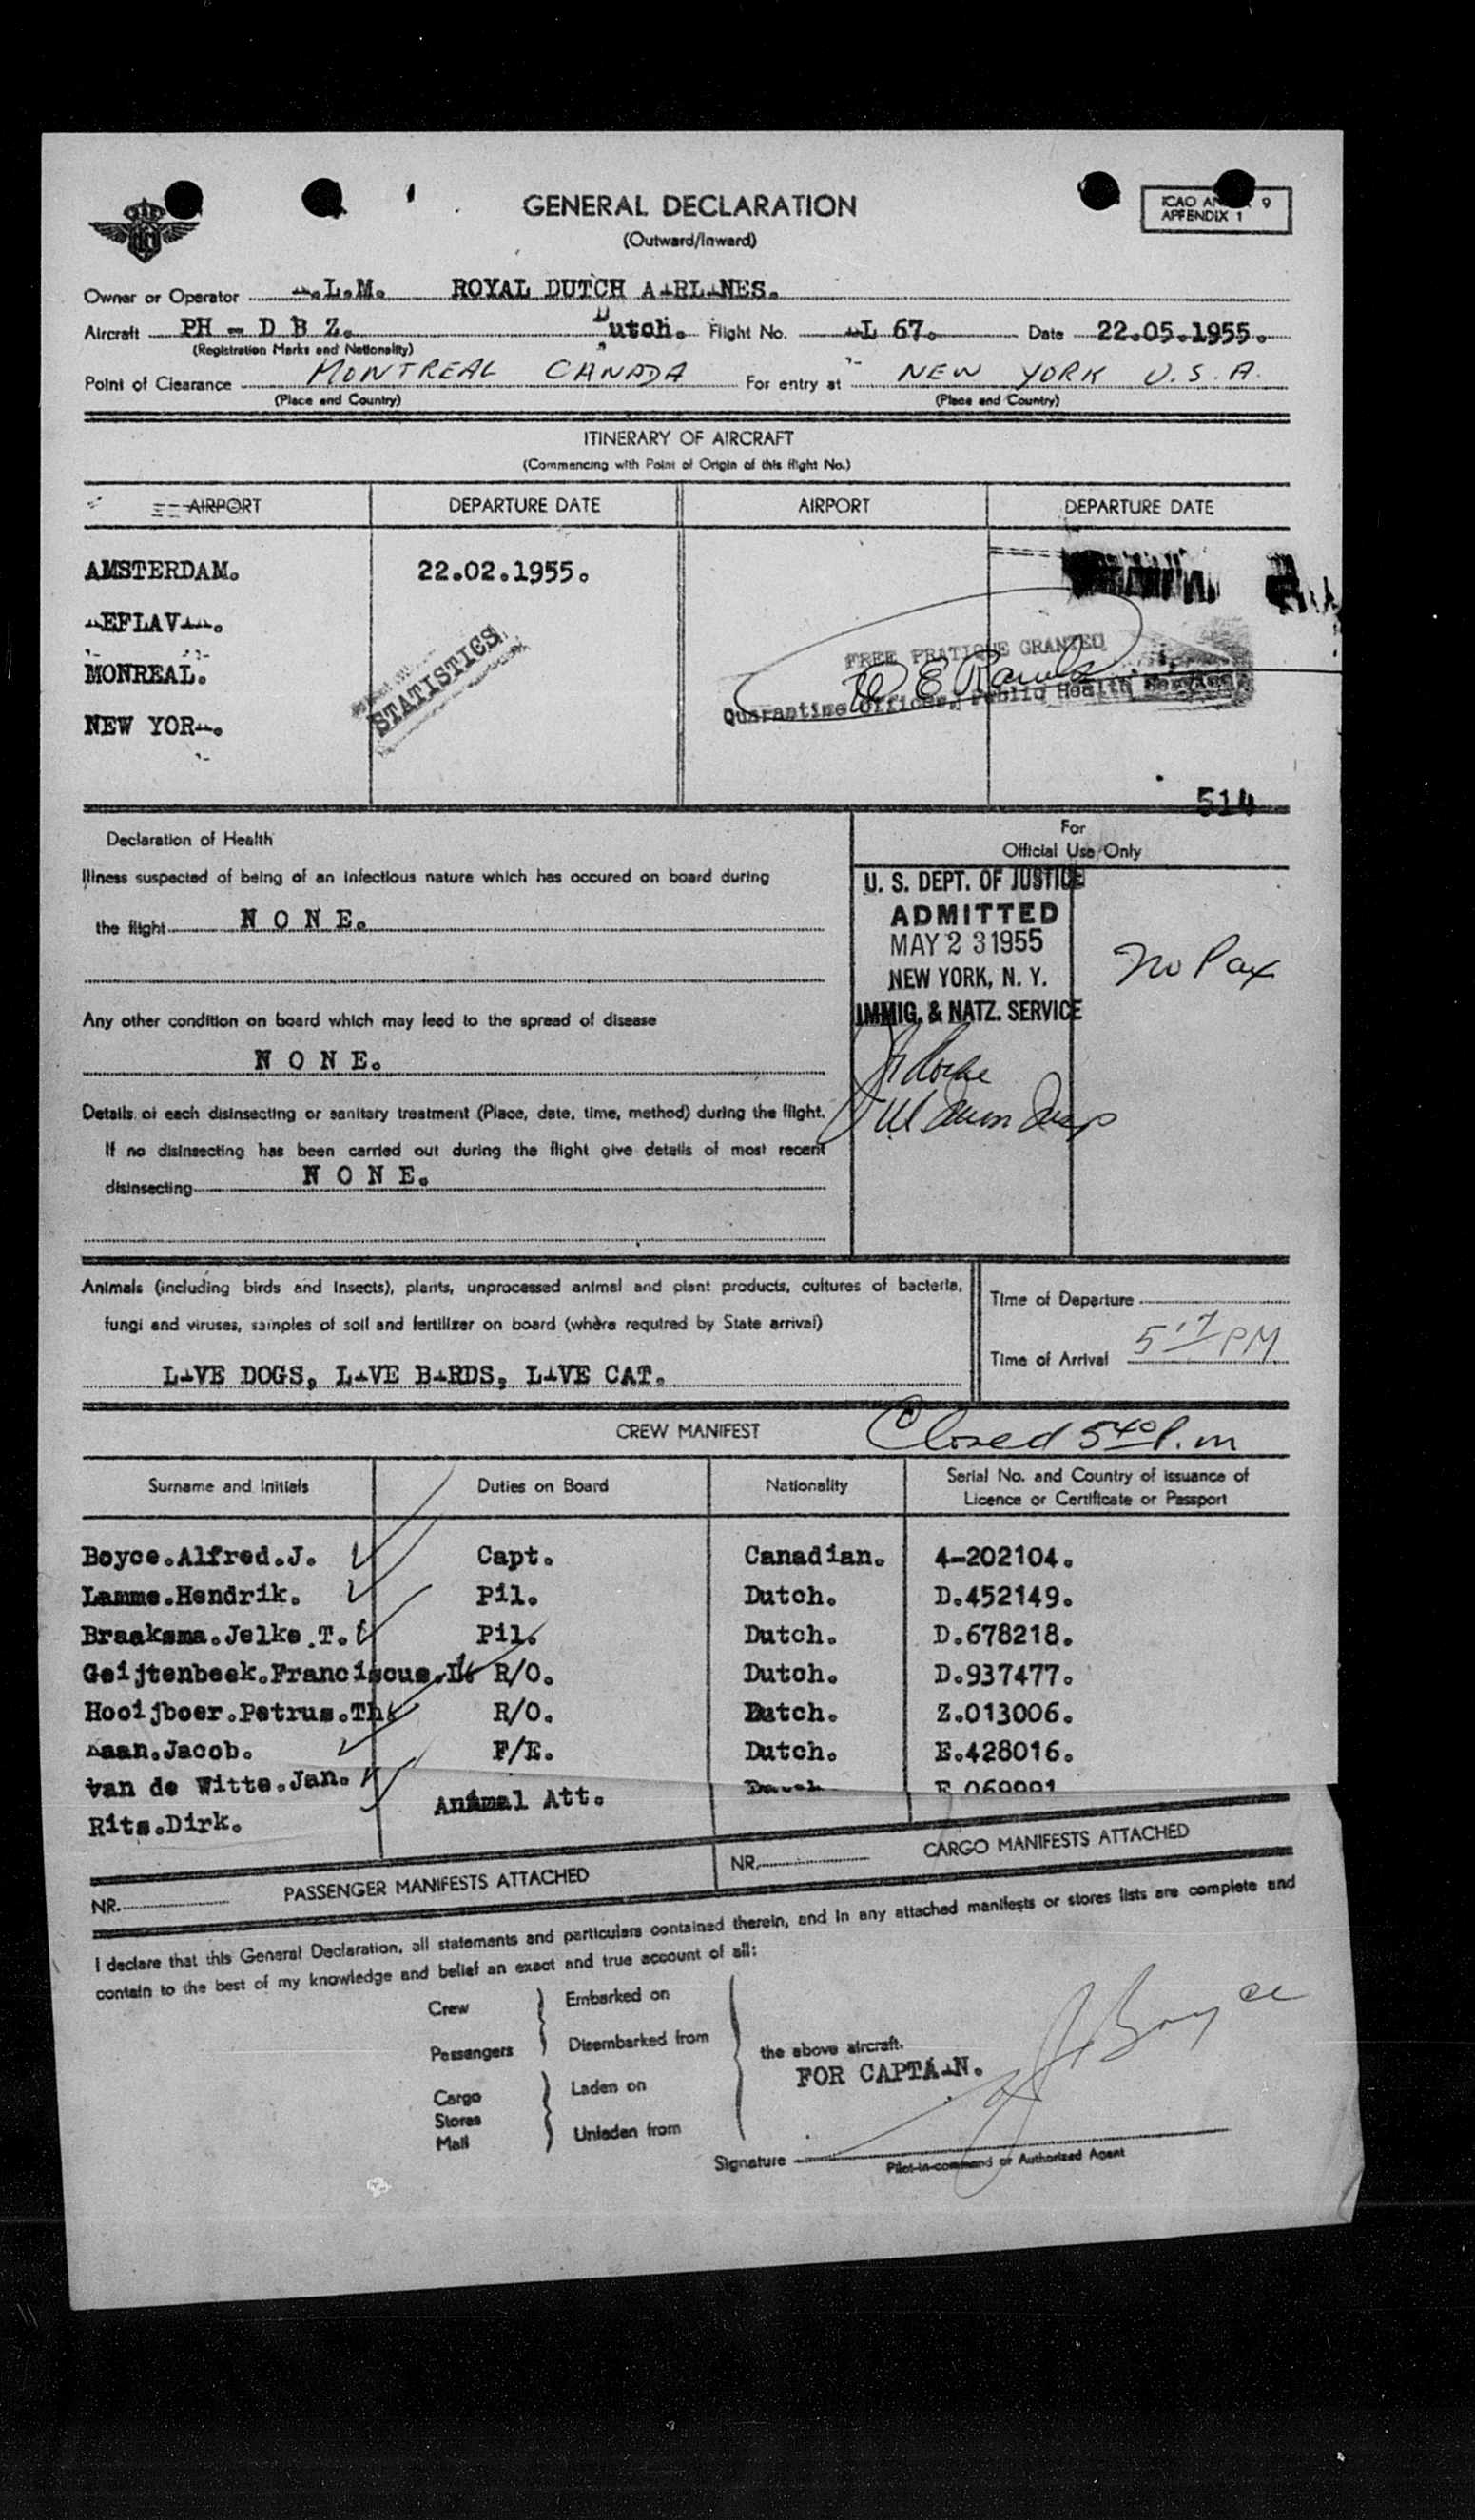 GENERAL DECLARATION
ICAO AN 9
APPENDIX 1
(Outward/Inward)
Owner or Operator .L.M. ROYAL DUTCH AIRLINES.
Aircraft PH - D B Z. Dutch. Flight No. L 67. Date 22.05.1955.
(Registration Marks and Nationality)
Point of Clearance MONTREAL CANADA For entry at NEW YORK U.S.A.
(Place and Country) (Place and Country)
ITINERARY OF AIRCRAFT
(Commencing with Point of Origin of this flight No.)
AIRPORT DEPARTURE DATE AIRPORT DEPARTURE DATE
AMSTERDAM. 22.02.1955.
EFLAV.
MONREAL.
NEW YOR.
STATISTICS
FREE PRATIQUE GRANTED
Quarantine Officer, Public Health Service
514
Declaration of Health
For
Official Use Only
Illness suspected of being of an infectious nature which has occured on board during
the flight N O N E.
U. S. DEPT. OF JUSTICE
ADMITTED
MAY 23 1955
NEW YORK, N. Y.
IMMIG. & NATZ. SERVICE
No Pax
Any other condition on board which may lead to the spread of disease
N O N E.
Details of each disinsecting or sanitary treatment (Place, date, time, method) during the flight.
If no disinsecting has been carried out during the flight give details of most recent
disinsecting N O N E.
Animals (including birds and insects), plants, unprocessed animal and plant products, cultures of bacteria,
fungi and viruses, samples of soil and fertilizer on board (where required by State arrival)
LIVE DOGS, LIVE BIRDS, LIVE CAT.
Time of Departure
Time of Arrival 5 17 PM
CREW MANIFEST
Closed 5 40 P.m
Surname and Initials Duties on Board Nationality Serial No. and Country of issuance of
Licence or Certificate or Passport
Boyce.Alfred.J. Capt. Canadian. 4-202104.
Lamme.Hendrik. Pil. Dutch. D.452149.
Braaksma.Jelke.T. Pil. Dutch. D.678218.
Geijtenbeek.Franciscus.L. R/O. Dutch. D.937477.
Hooijboer.Petrus.Th. R/O. Dutch. Z.013006.
Kaan.Jacob. F/E. Dutch. E.428016.
van de Witte.Jan. Dutch E 069991
Rits.Dirk. Animal Att.
NR. PASSENGER MANIFESTS ATTACHED NR. CARGO MANIFESTS ATTACHED
I declare that this General Declaration, all statements and particulars contained therein, and in any attached manifests or stores lists are complete and
contain to the best of my knowledge and belief an exact and true account of all:
Crew
Passengers
Embarked on
Disembarked from
Cargo
Stores
Mail
Laden on
Unladen from
the above aircraft.
FOR CAPTAIN.
Signature A J Boyce
Pilot-in-command or Authorized Agent